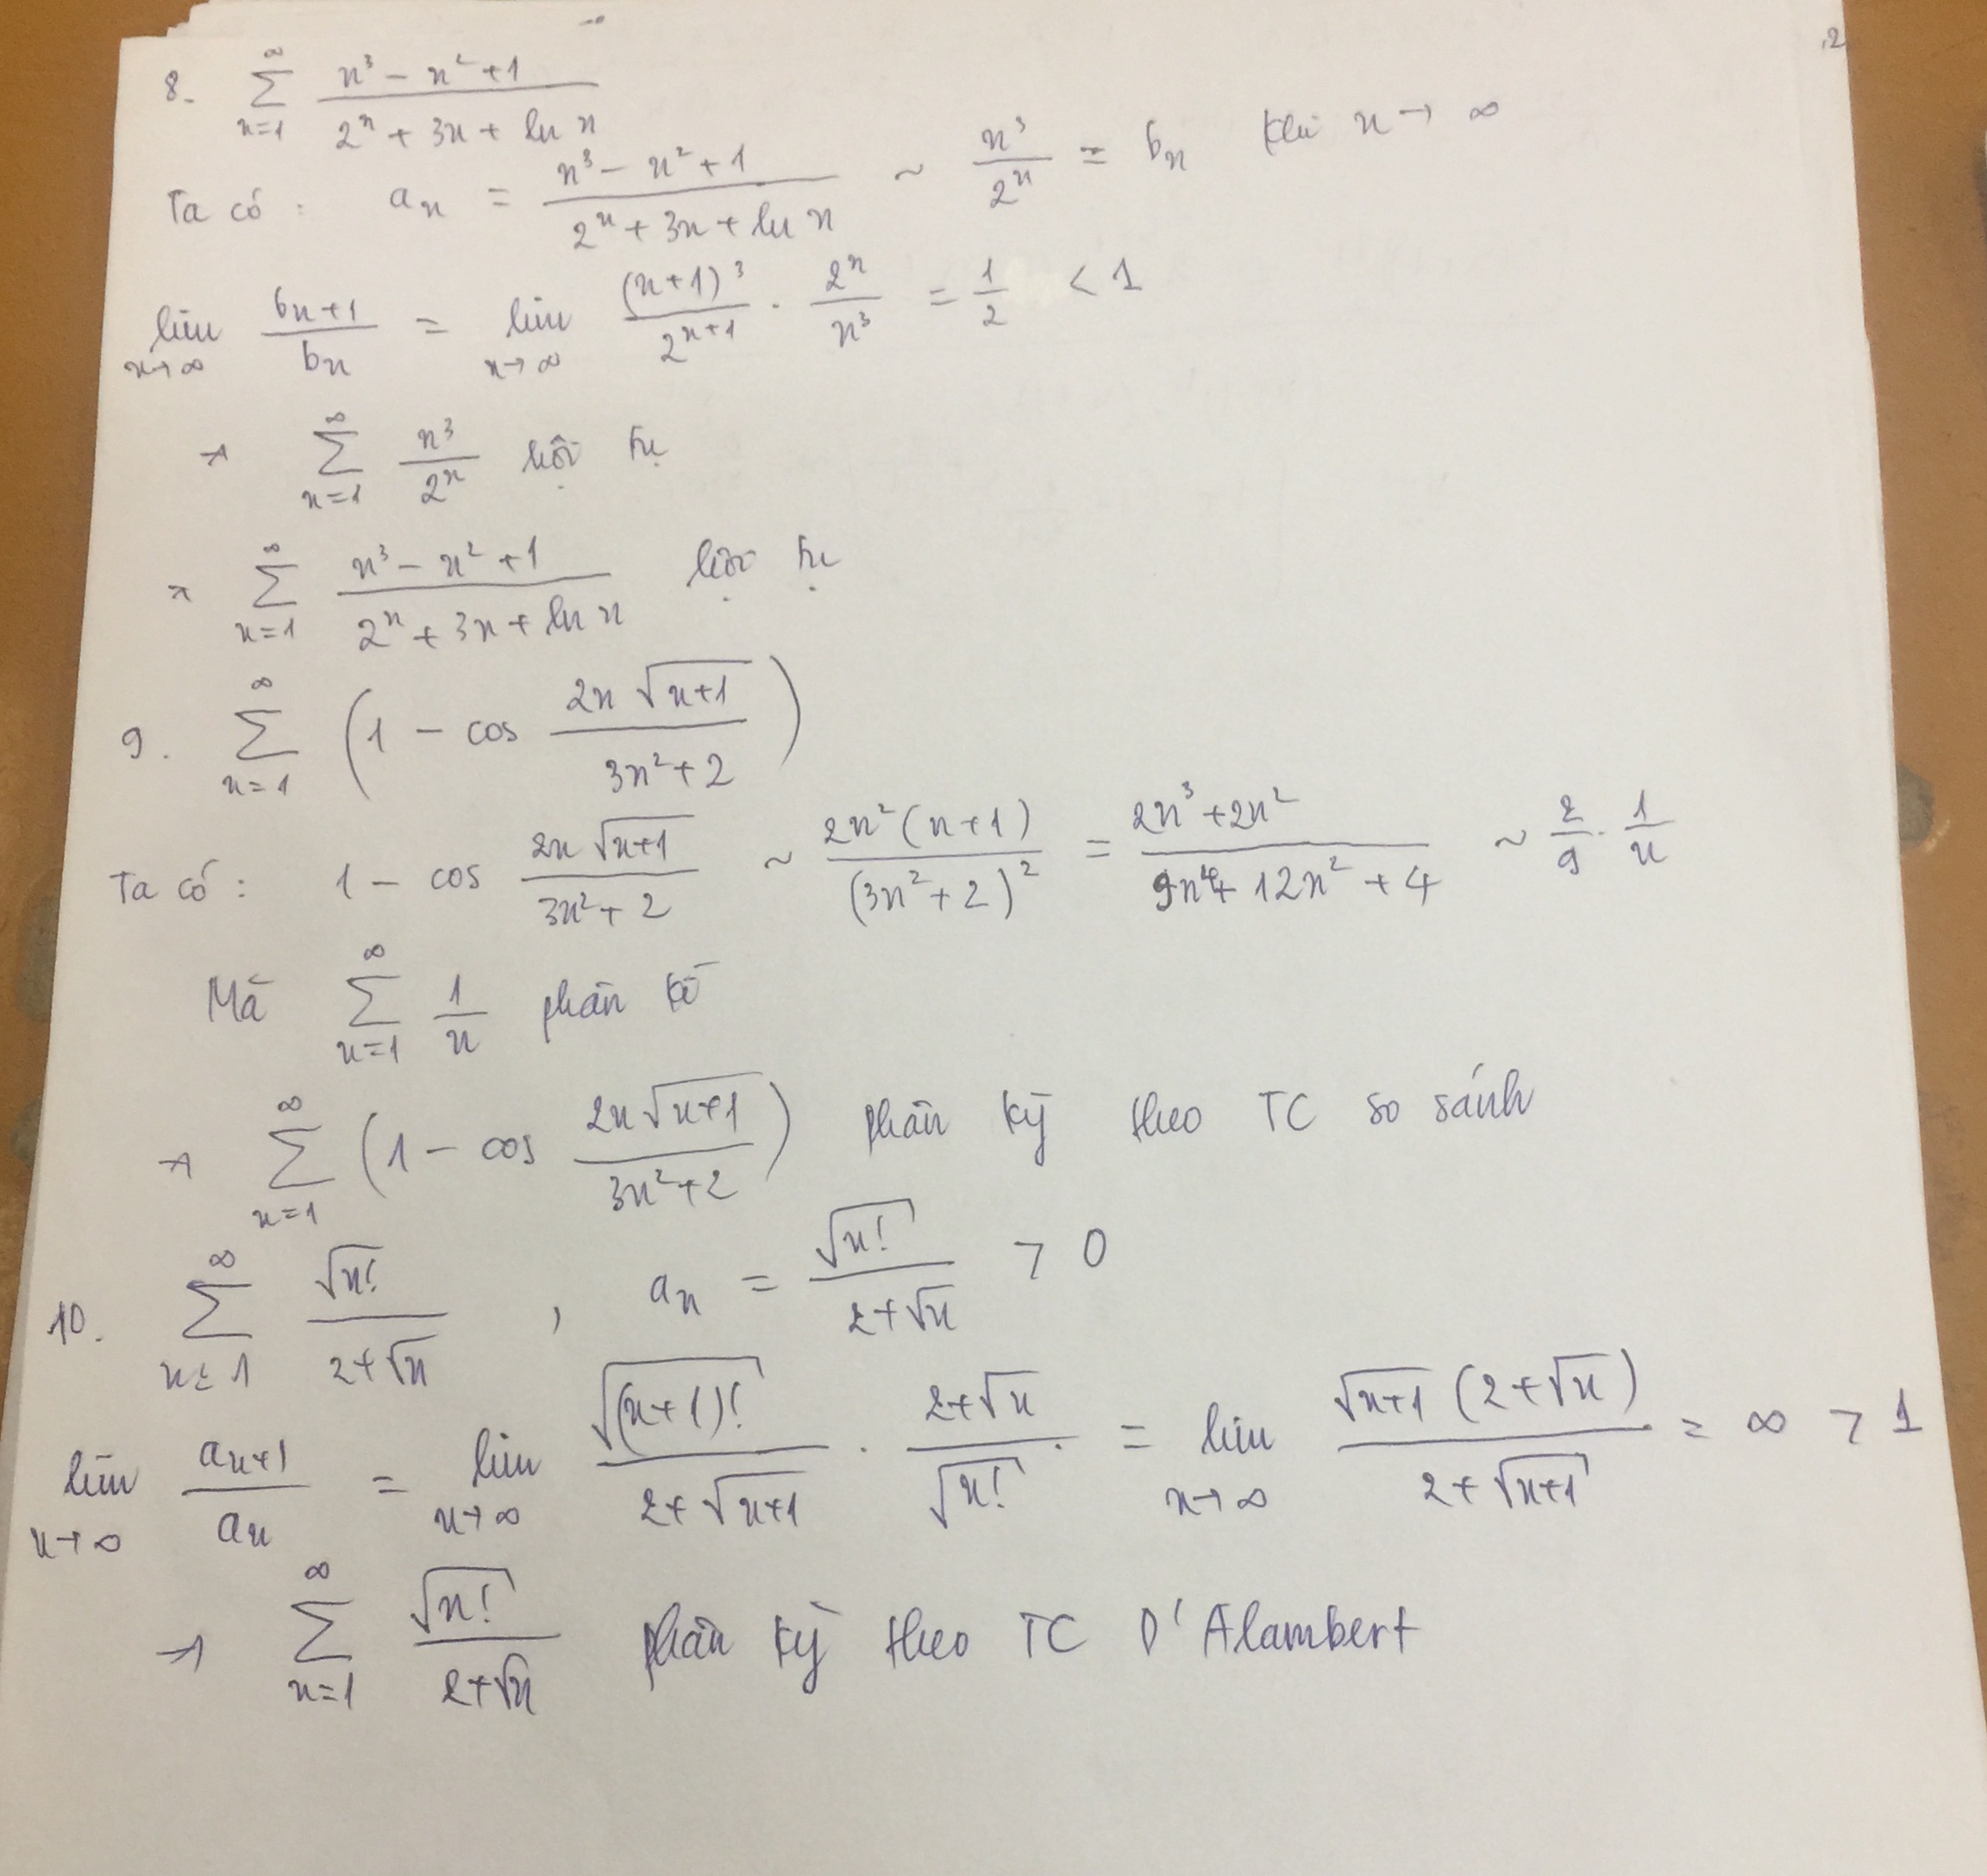 .2
8. ∑_{n=1}^{∞} (n³ − n² + 1)/(2ⁿ + 3n + ln n)
Ta có : aₙ = (n³ − n² + 1)/(2ⁿ + 3n + ln n) ~ n³/2ⁿ = bₙ khi n → ∞
lim_{n→∞} bₙ₊₁/bₙ = lim_{n→∞} (n+1)³/2ⁿ⁺¹ · 2ⁿ/n³ = 1/2 < 1
→ ∑_{n=1}^{∞} n³/2ⁿ hội tụ
→ ∑_{n=1}^{∞} (n³ − n² + 1)/(2ⁿ + 3n + ln n) hội tụ
9. ∑_{n=1}^{∞} (1 − cos (2n√(n+1))/(3n²+2))
Ta có : 1 − cos (2n√(n+1))/(3n²+2) ~ 2n²(n+1)/(3n²+2)² = (2n³+2n²)/(9n⁴+12n²+4) ~ 2/9 · 1/n
Mà ∑_{n=1}^{∞} 1/n phân kì
→ ∑_{n=1}^{∞} (1 − cos (2n√(n+1))/(3n²+2)) phân kỳ theo TC so sánh
10. ∑_{n=1}^{∞} √(n!)/(2+√n) , aₙ = √(n!)/(2+√n) > 0
lim_{n→∞} aₙ₊₁/aₙ = lim_{n→∞} √((n+1)!)/(2+√(n+1)) · (2+√n)/√(n!) = lim_{n→∞} √(n+1)(2+√n)/(2+√(n+1)) = ∞ > 1
→ ∑_{n=1}^{∞} √(n!)/(2+√n) phân kỳ theo TC D'Alambert